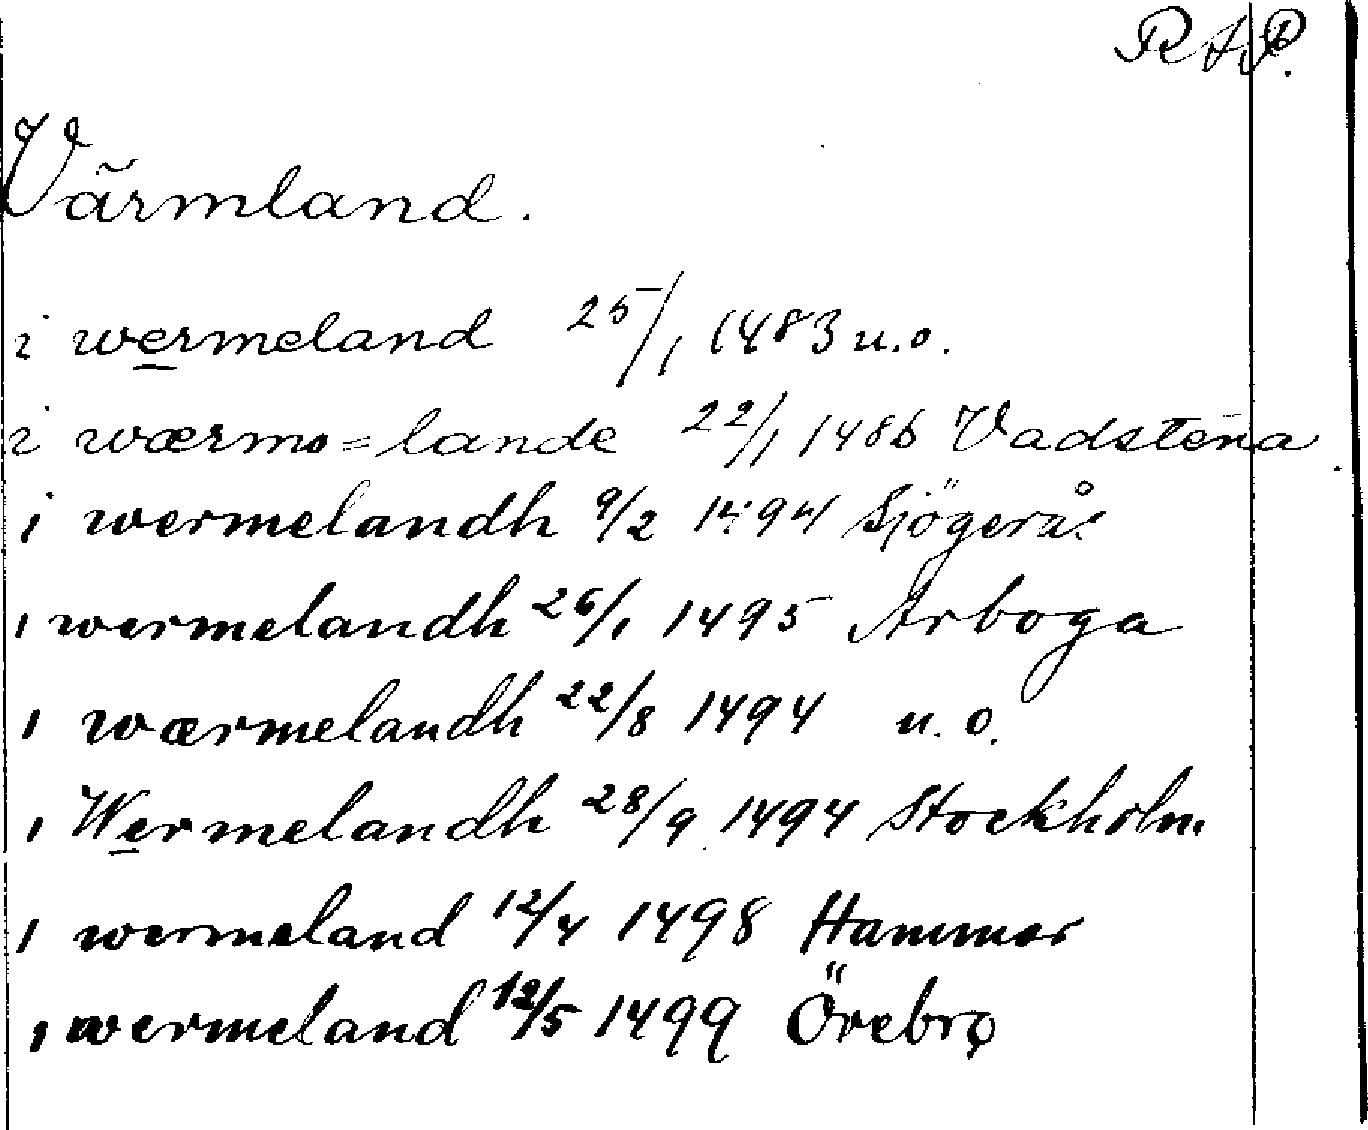 RAP.
Värmland.
i wermeland 25/1 1483 u.o.
i wærmo=lande 22/1 1486 Vadstena
i wermelandh 9/2 1494 Sjögerås
i wermelandh 26/1 1495 Arboga
i wærmelandh 22/8 1494 u.o.
i Wermelandh 28/9 1494 Stockholm
i wermeland 12/4 1498 Hammar
i wermeland 12/5 1499 Örebro